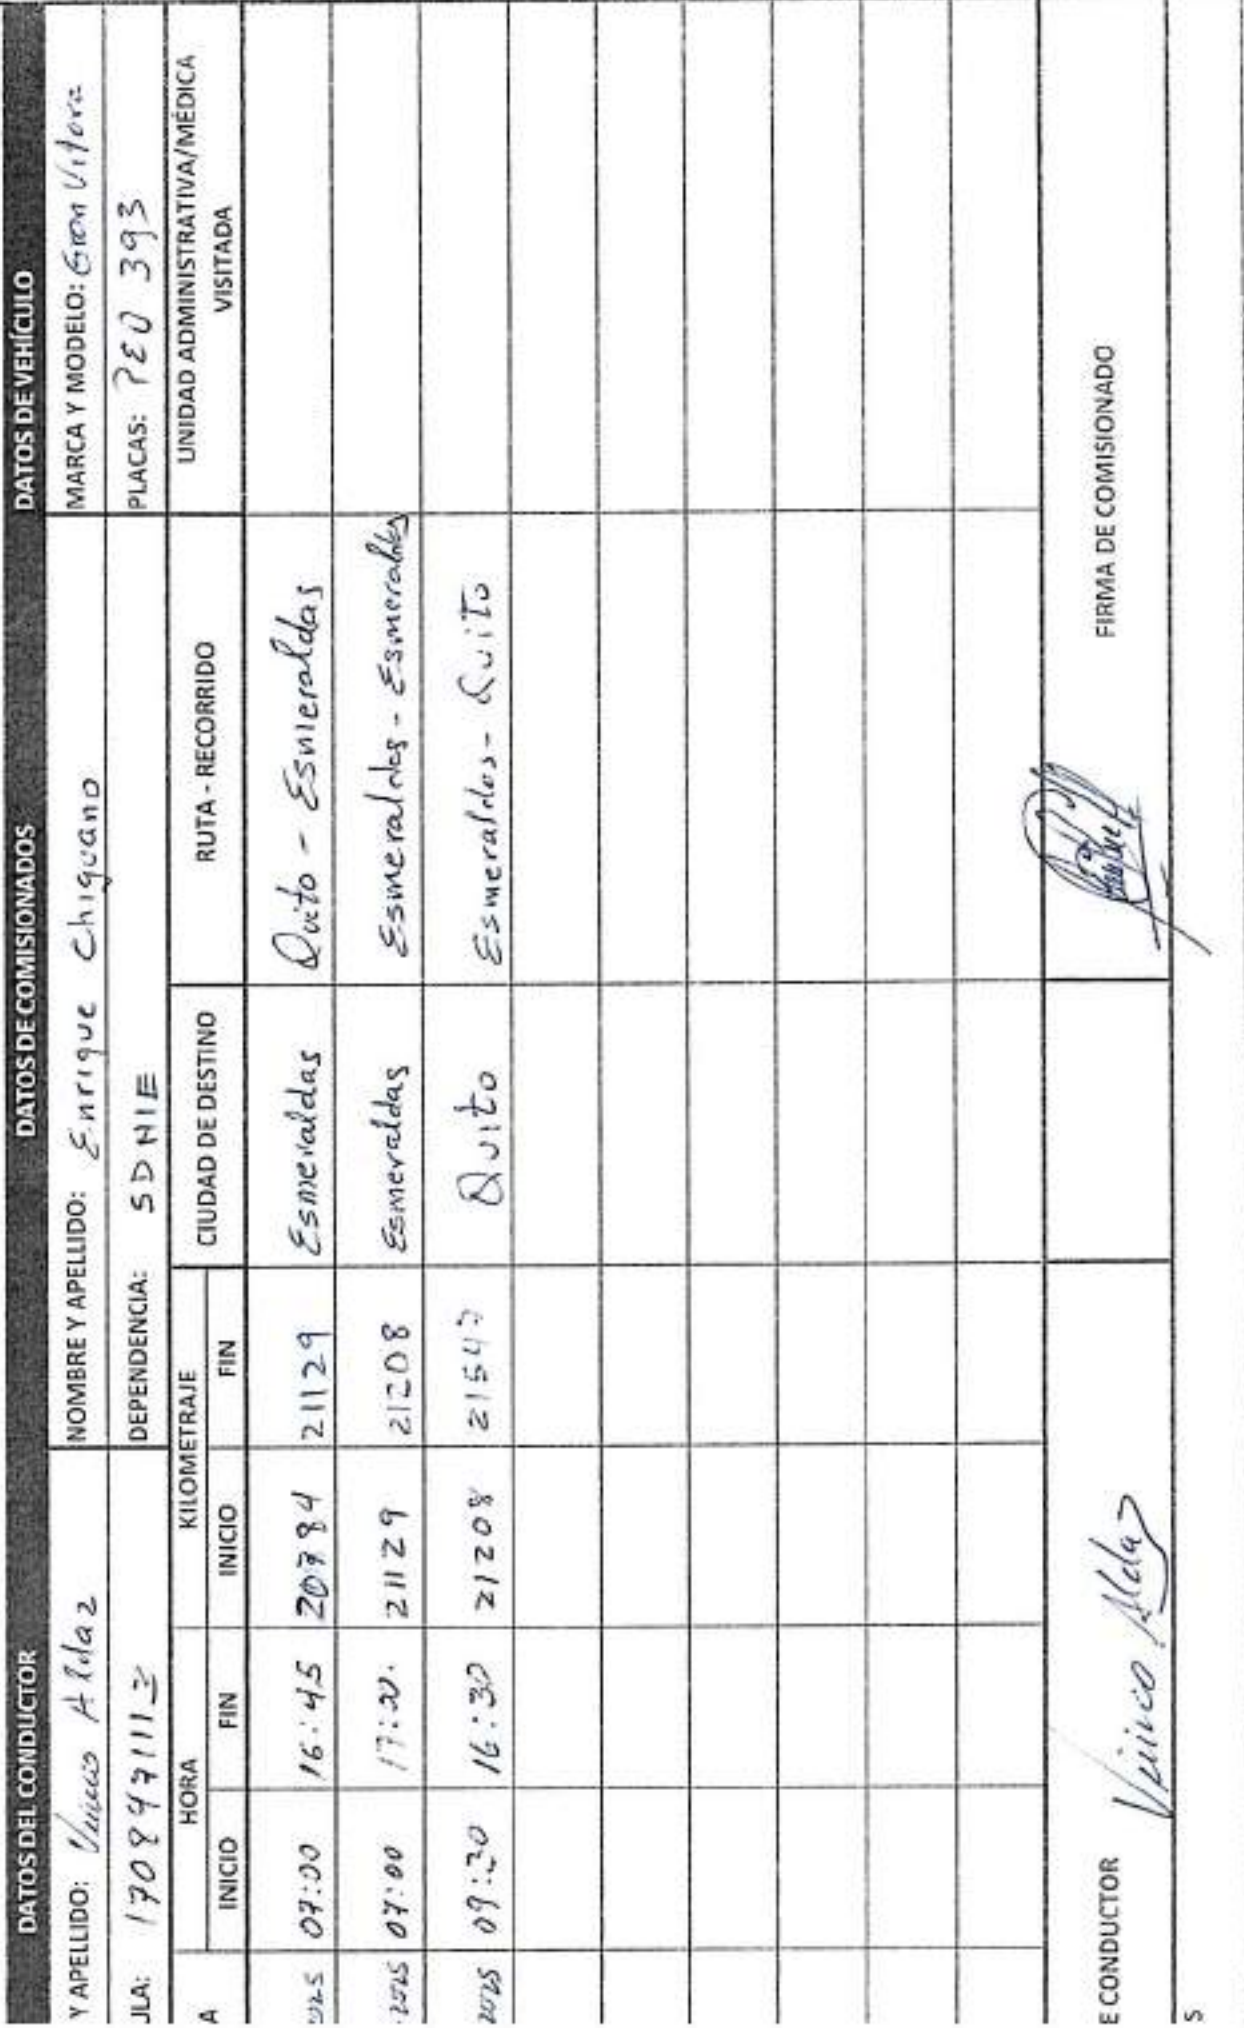 DATOS DEL CONDUCTOR DATOS DE COMISIONADOS DATOS DE VEHÍCULO
Y APELLIDO: Aldaz NOMBRE Y APELLIDO: Enrique Chiguano MARCA Y MODELO: Gran Vitara
JLA: DEPENDENCIA: SDNIE PLACAS: PEO 393
A HORA KILOMETRAJE CIUDAD DE DESTINO RUTA - RECORRIDO UNIDAD ADMINISTRATIVA/MÉDICA VISITADA
INICIO FIN INICIO FIN
2025 07:00 16:45 20784 21129 Esmeraldas Quito - Esmeraldas
2025 07:00 17:20. 21129 21208 Esmeraldas Esmeraldas - Esmeraldas
2025 09:20 16:30 21208 21547 Quito Esmeraldas - Quito
E CONDUCTOR FIRMA DE COMISIONADO
S